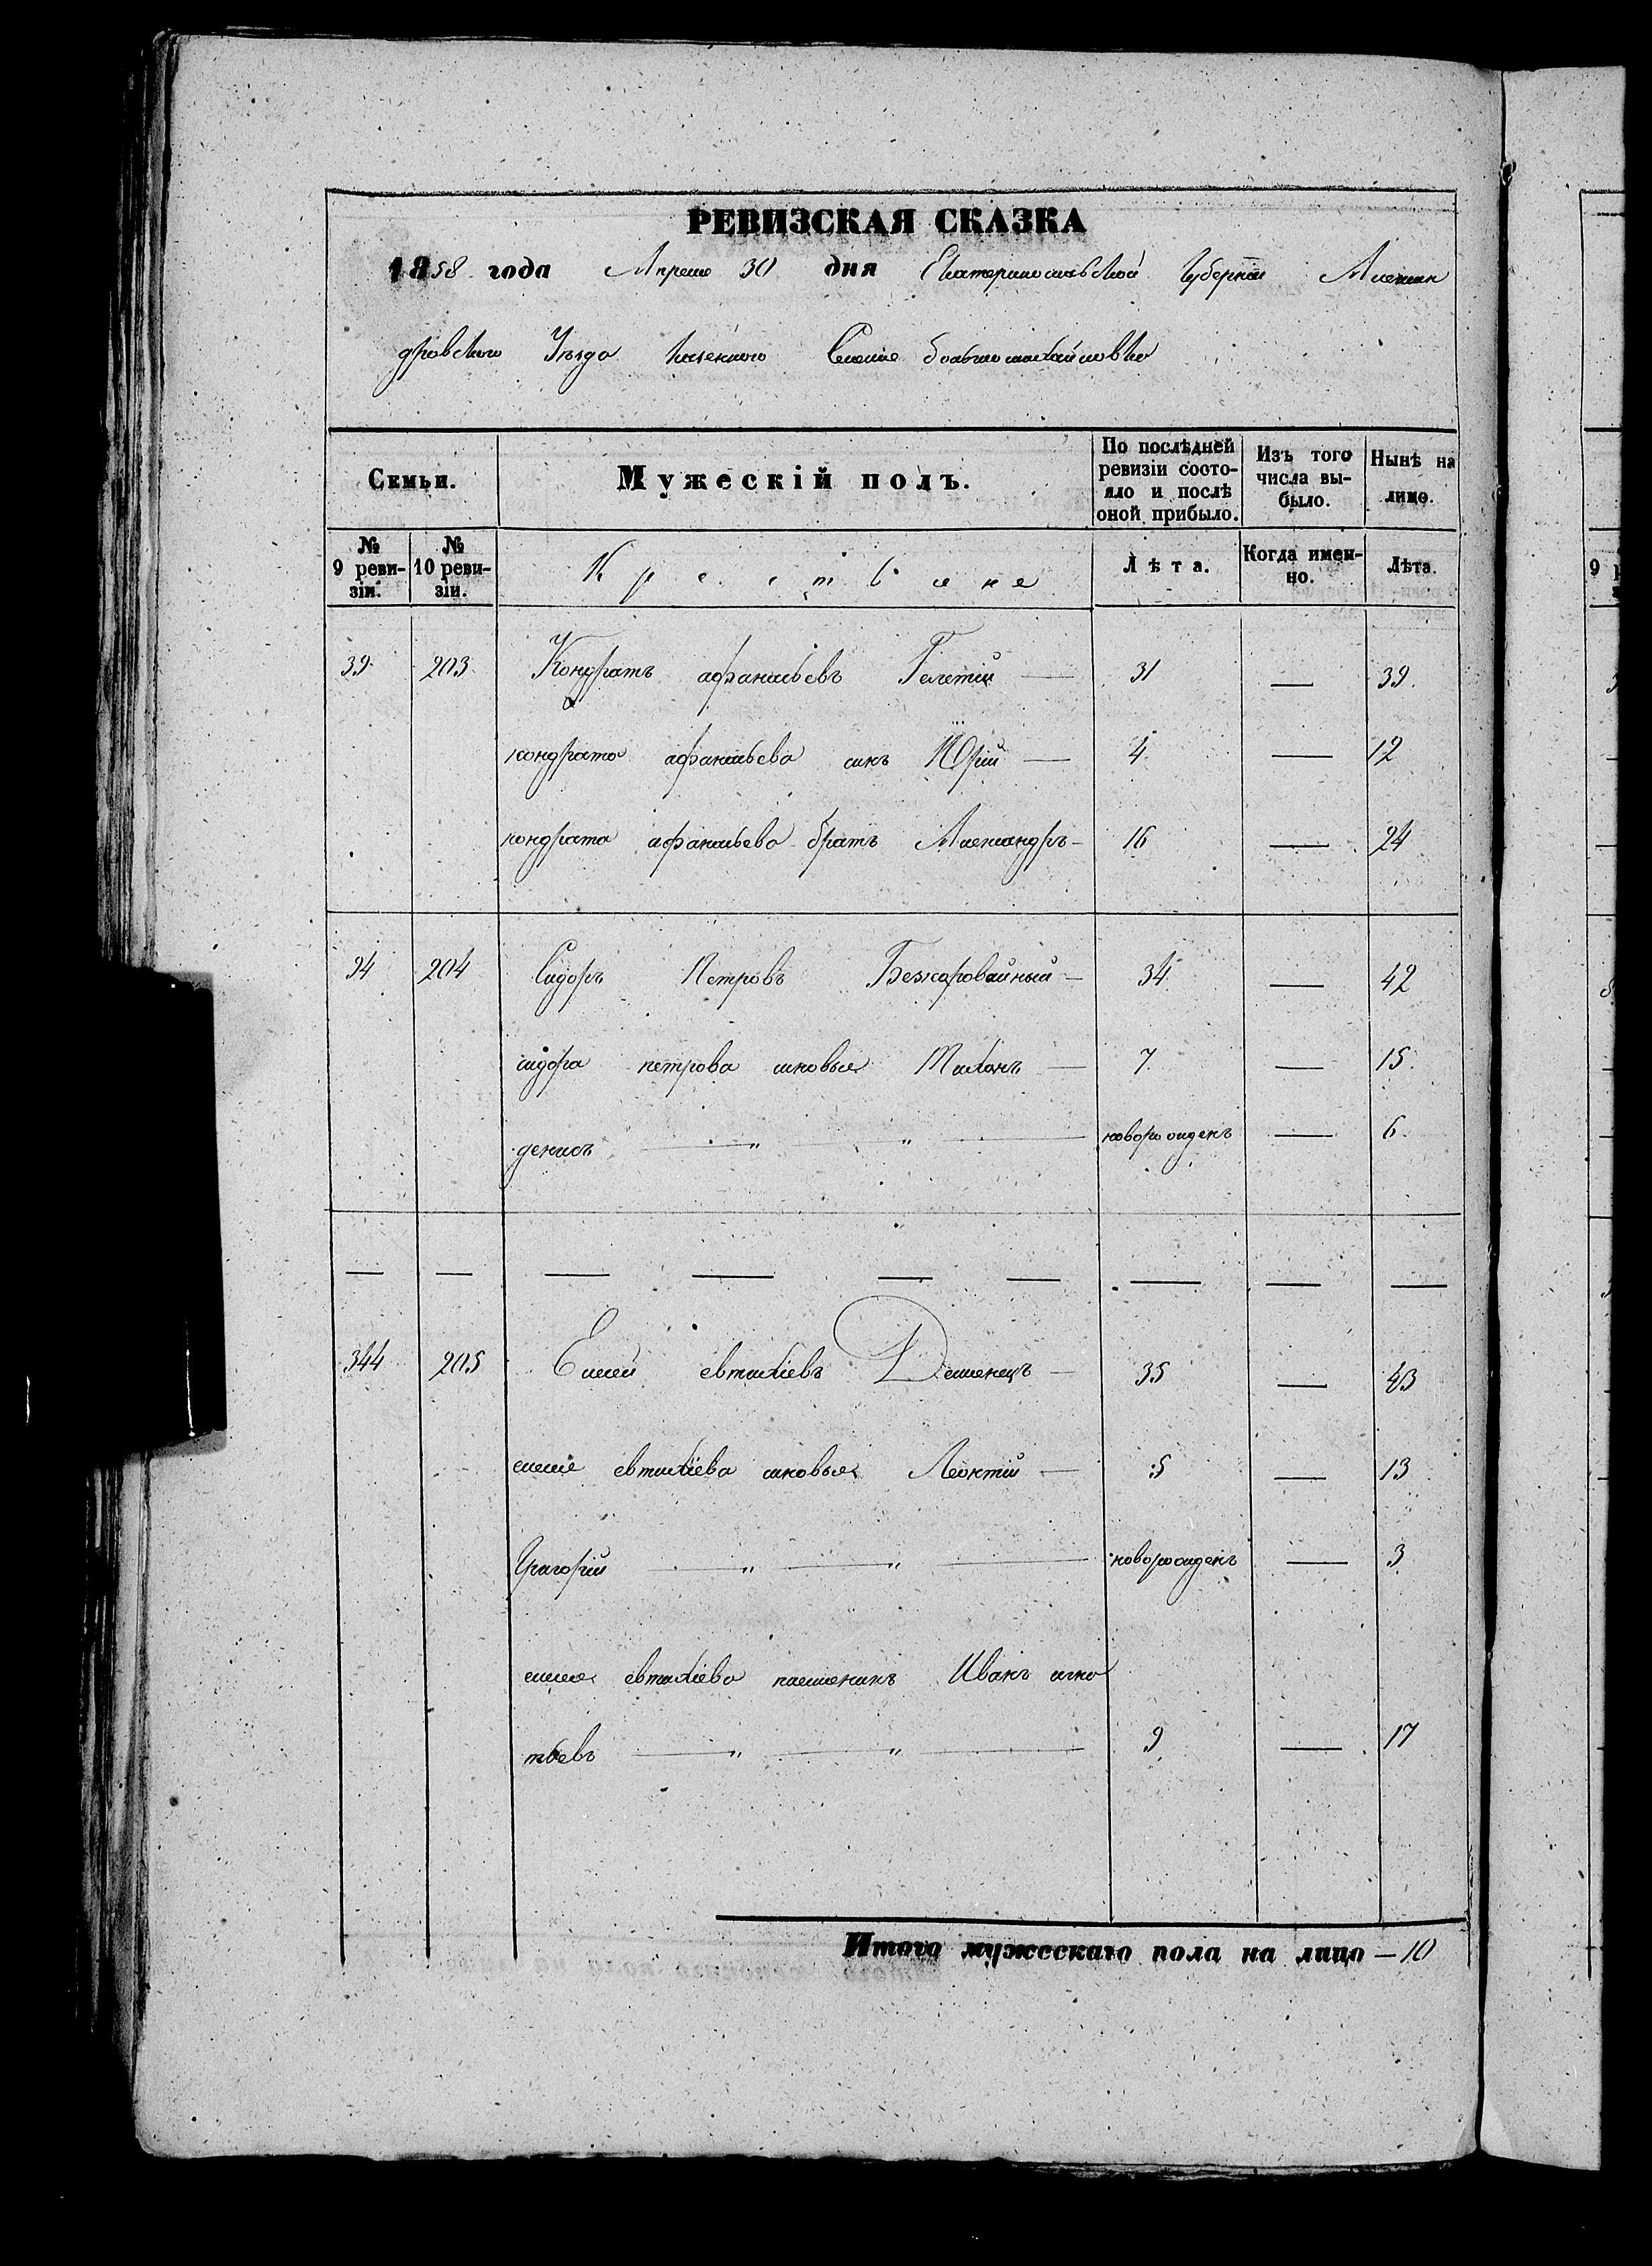 РЕВИЗСКАЯ СКАЗКА
1858 года Апреля 30 дня Екатеринославской Губерніи Алексан
дровского Уезда казенного Селенія больше михайловки
Семьи. Мужескій полъ. По послѣдней ревизіи состояло и послѣ оной прибыло. Изъ того числа выбыло. Нынѣ на лицо.
№ 9 ревизіи. № 10 ревизіи. Крестьяне Лѣта. Когда именно. Лѣта.
39 203 Кондратъ афанасьевъ Гелетій — 31 — 39
кондрата афанасьева сынъ Юрій — 4 — 12
кондрата афанасьева братъ Александръ — 16 — 24
94 204 Сидоръ Петровъ Безкоровайный — 34 — 42
сидора петрова сыновья Тихонъ — 7 — 15
денисъ — „ — „ — новорожденъ — 6
344 205 Елисей евтихіевъ — 35 — 43
елисея евтихіева сыновья Леонтій — 5 — 13
Григорій — „ — „ — новорожденъ — 3
елисея евтихіева племеникъ Иванъ игна
тьевъ — „ — „ — 9 — 17
Итого мужескаго пола на лицо — 10